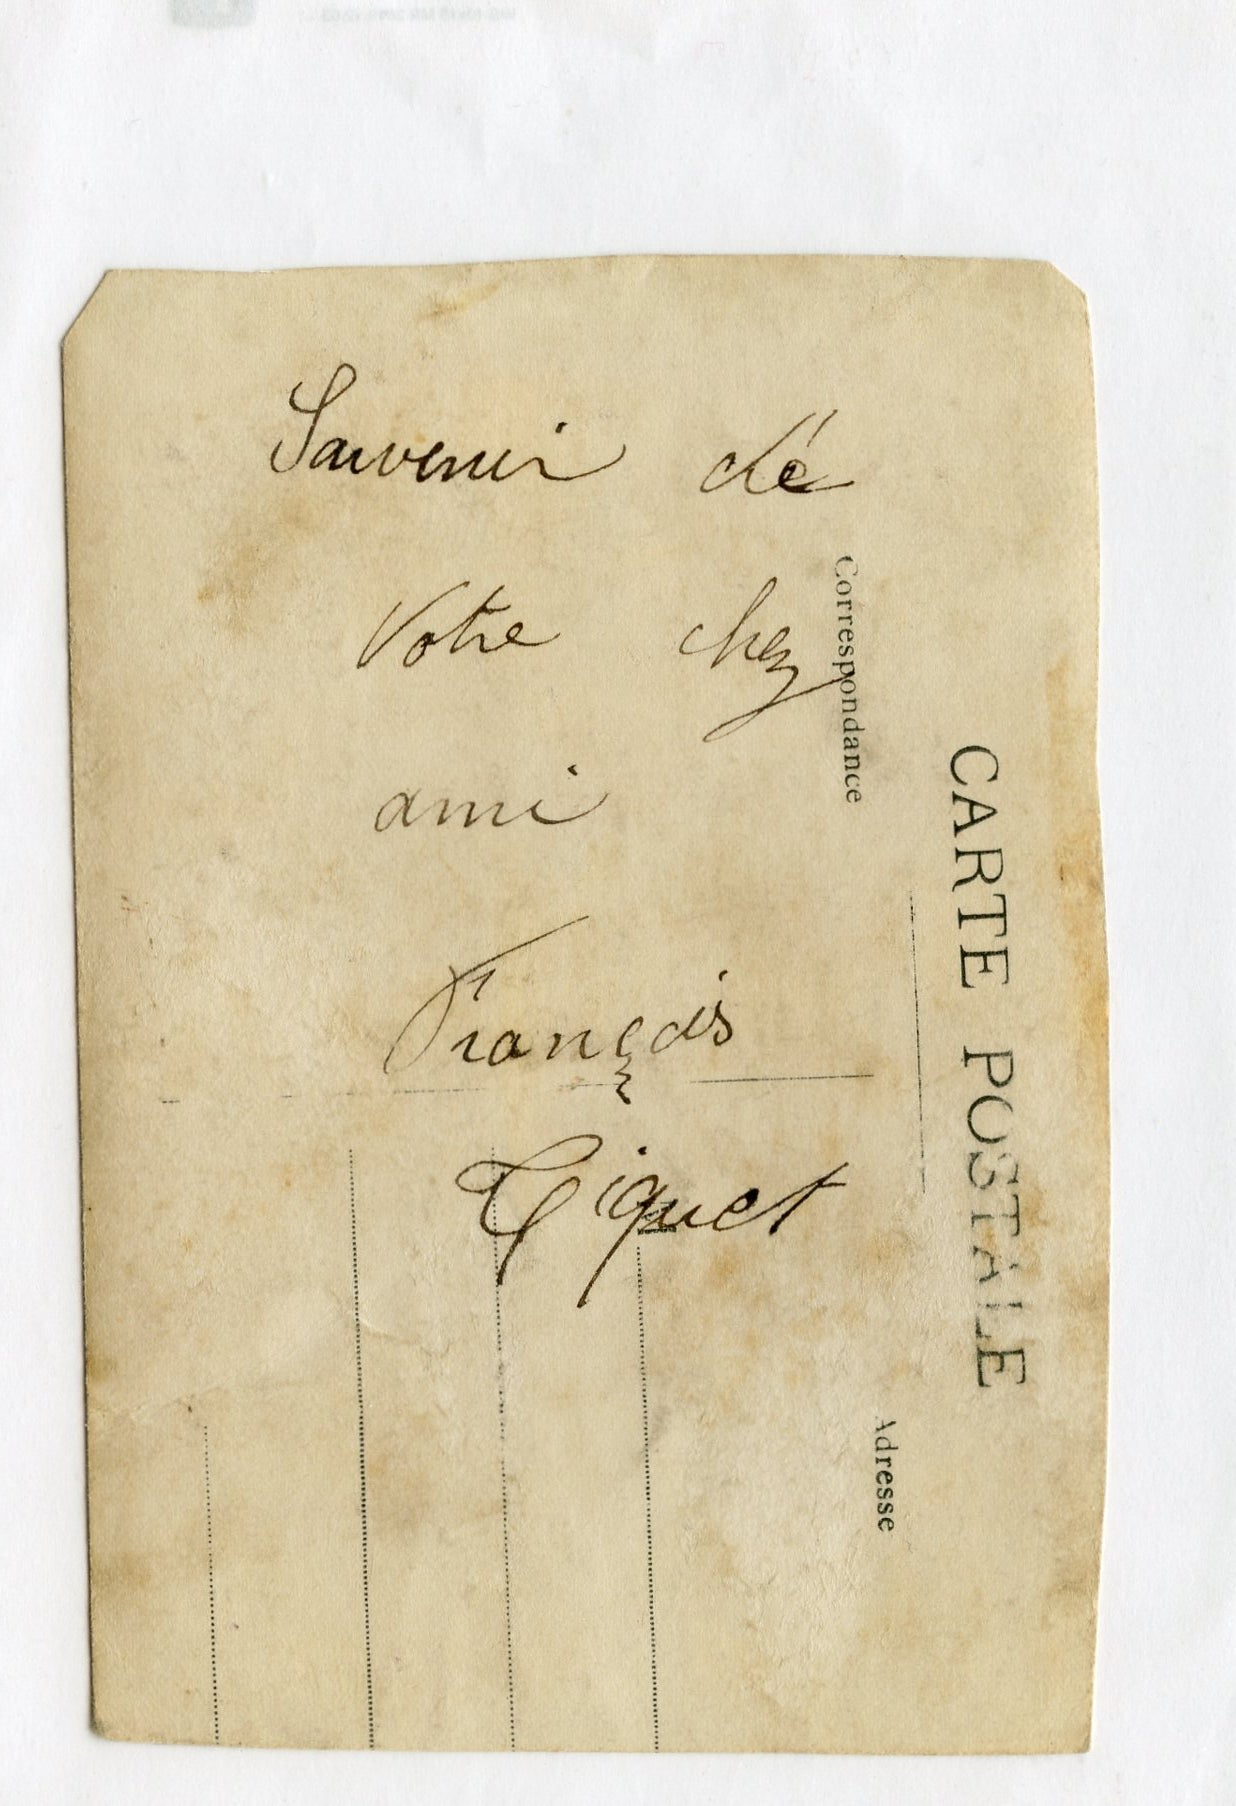 Souvenir de
Votre cher
ami
François
Tiquet
Correspondance
CARTE POSTALE
Adresse